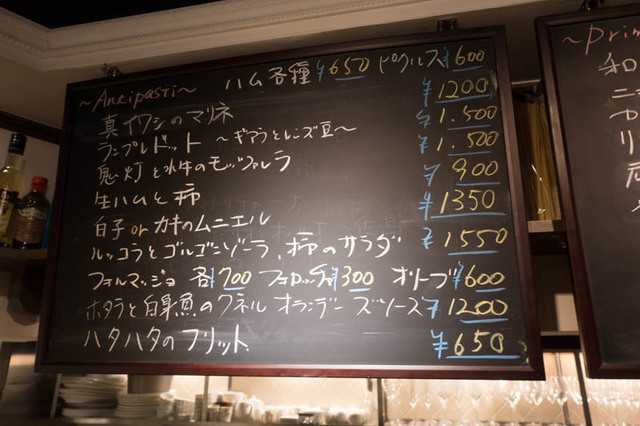 ~Antipasti~ ハム各種 ¥650 ピクルス ¥600
真イワシのマリネ ¥1200
ランプレドット ~ギアラとレンズ豆~ ¥1.500
鬼灯と水牛のモッツァレラ ¥1.500
生ハムと柿 ¥900
白子 or カキのムニエル ¥1350
ルッコラとゴルゴンゾーラ、柿のサラダ ¥1550
フォルマッジョ 各¥700 フォカッチャ¥300 オリーブ ¥600
ホタテと白身魚のクネル オランデーズソース ¥1200
ハタハタのフリット ¥650
~Prim
和
ニ
カ
リ